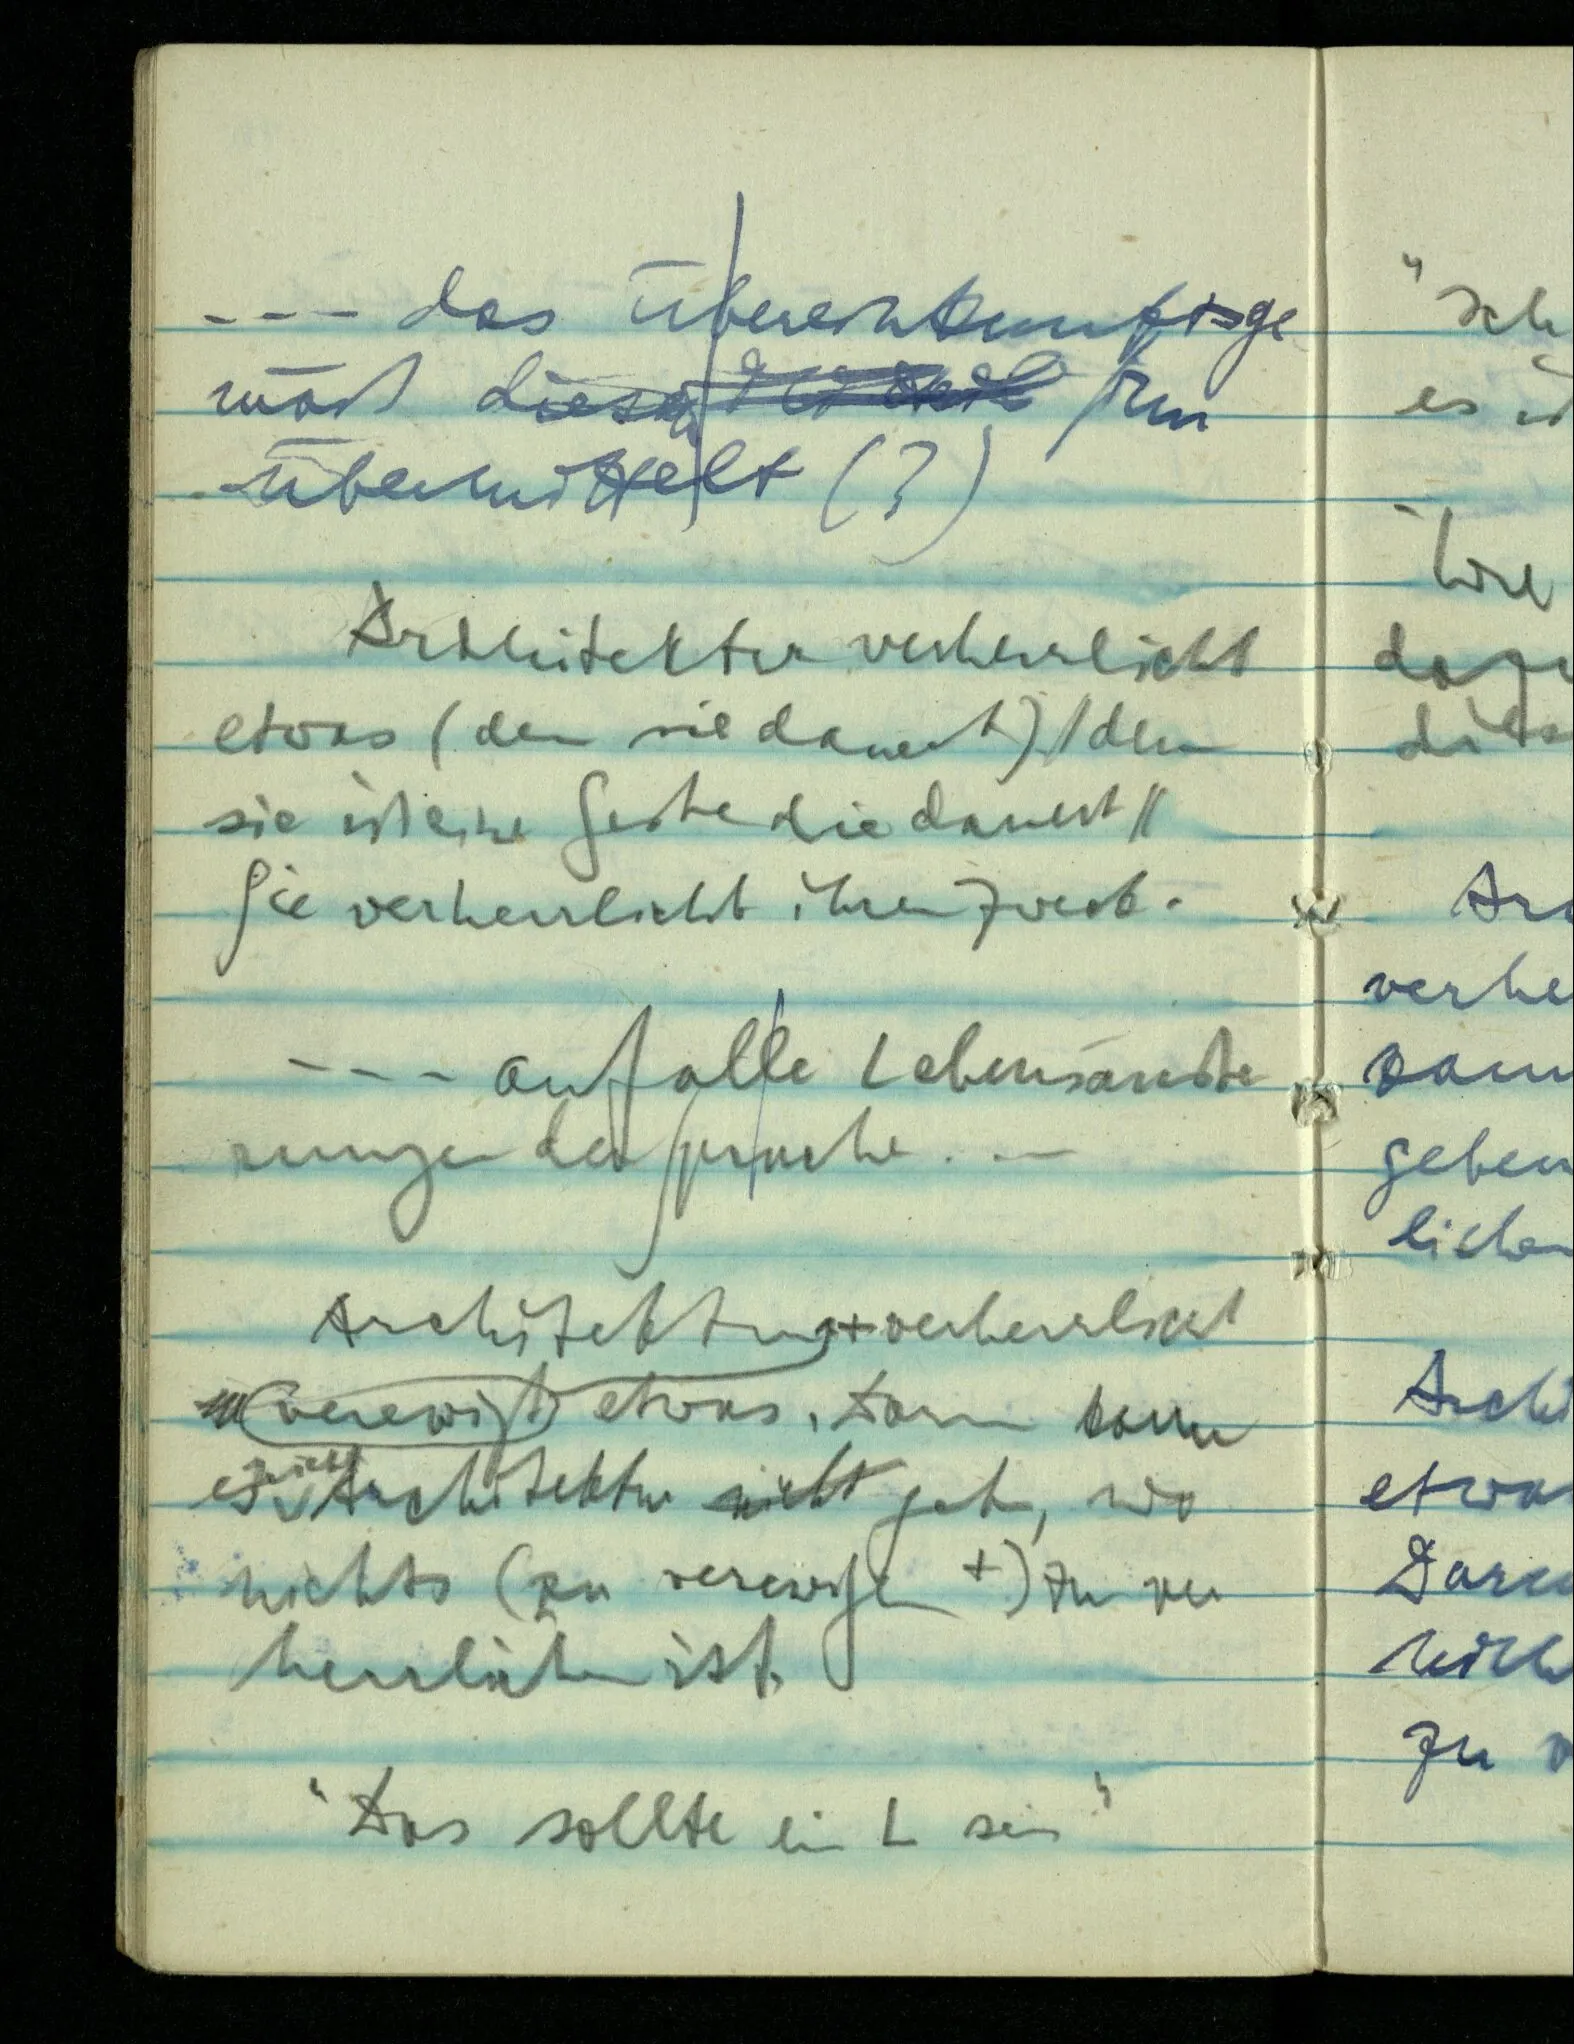 --- das Übereinkunftsge
mäß diesen Sinn
übermittelt (?)
Architektur verherrlicht
etwas (denn sie dauert) // denn
sie ist eine Geste die dauert //
Sie verherrlicht ihren Zweck.
--- auf alle Lebensäuße
rungen der Sprache . . —
Architektur + verherrlicht
(verewigt) etwas. Darum kann
es nicht Architektur nicht geben, wo
nichts (zu verewigen +) zu ver
herrlichen ist.
"Das sollte ein L sein"
"Ich
es
Wie
dazu
Arc
verhe
kann
geben
lichen
Archi
etwas
Daru
nich
zu v